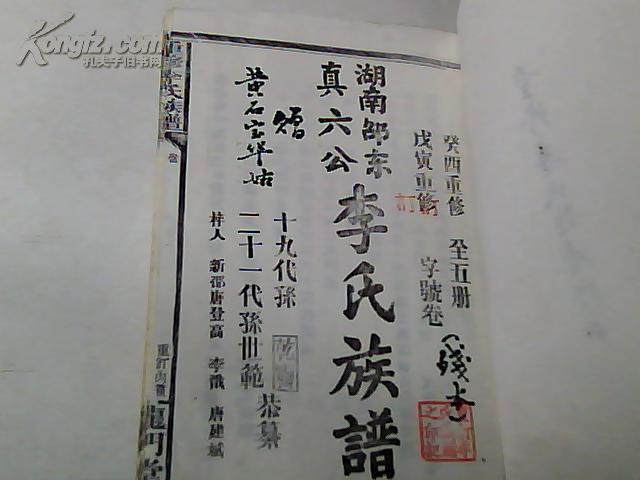 Kongfz.com
孔夫子旧书网
癸酉重修 全五册
戊寅重修
字號卷(殘本)
湖南邵东
真六公
李氏族譜
贈
黄石宝华姑
十九代孫
二十一代孫世範 恭纂
梓人 新邵唐登高 李 唐建斌
李氏族譜
重訂內續
龍門堂